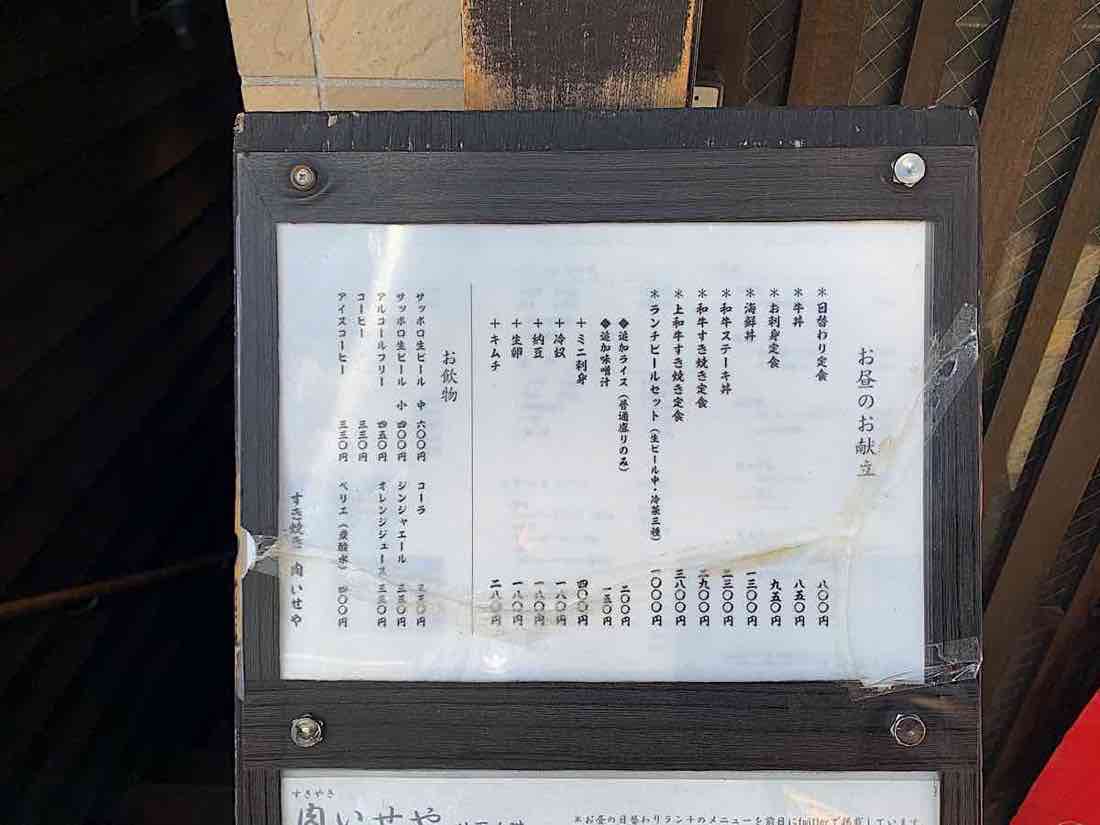 お昼のお献立
＊日替わり定食 八〇〇円
＊牛丼 八五〇円
＊お刺身定食 九五〇円
＊海鮮丼 一三〇〇円
＊和牛ステーキ丼 二三〇〇円
＊和牛すき焼き定食 二九〇〇円
＊上和牛すき焼き定食 三八〇〇円
＊ランチビールセット（生ビール中・冷菜三種） 一〇〇〇円
◆追加ライス（普通盛りのみ） 二〇〇円
◆追加味噌汁 一五〇円
＋ミニ刺身 四〇〇円
＋冷奴 一八〇円
＋納豆 一八〇円
＋生卵 一八〇円
＋キムチ 二八〇円
お飲物
サッポロ生ビール 中 六〇〇円
サッポロ生ビール 小 四〇〇円
アルコールフリー 四五〇円
コーヒー 三三〇円
アイスコーヒー 三三〇円
コーラ 三三〇円
ジンジャエール 三三〇円
オレンジジュース 三三〇円
ペリエ（炭酸水） 四〇〇円
すき焼き 肉いせや
すきやき
肉いせや
＊お昼の日替わりランチのメニューを前日にtwitterで掲載しています